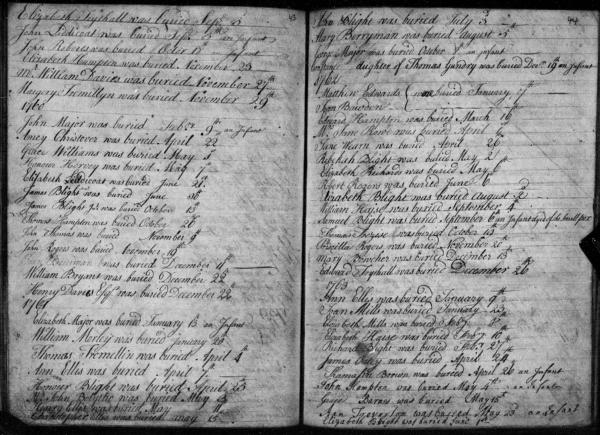 43
Elizabeth Trythall was buried Sept. 3
John Lidicoat was buried Sept. 5th an Infant
John Roberts was buried Octer 18 an Infant
Elizabeth Hampton was buried November 23
Mr. William Davies was buried November 27th
Margery Tremillyn was buried November 29th
1760
John Major was buried Feber 9th an Infant
Amey Christover was buried April 22
Grace Williams was buried May 5
Honour Harvey was buried May
Elizabeth Liddicoat was buried June 21
James Blight was buried June
James Blight Jr was buried October 13
Thomas Hampton was buried October 26
Thomas was buried November 9th
John Rogers was buried November 19th
Berriman was buried December 11th
William Bryant was buried December 22d
Henry Davies Esqr. was buried December 22
1761
Elizabeth Major was buried January 13 an Infant
William Morley was buried January 20
Thomas Tremellin was buried April 4th
Ann Elles was buried April 7th
Honour Blight was buried April 23
Mr. John was buried May 3
Henry Elles was buried May 11
Christopher Elles was buried May 15th
44
Ann Blight was buried July 3
Mary Berryman was buried August 5
George Major was buried October 8th an infant
daughter of Thomas Gundry was buried Decer. 19 an Infant
1762
Matthew Edwards was buried January 17th
Joan Bawden
Edward Hampton was buried March 16
Mrs. Jane Rowe was buried April 6
Jane Hearn was buried April 26
Rebekah Blight was buried May 2
Elizabeth Richards was buried May 6
Robert Rogers was buried June 6
Elizabeth Blight was buried August 2
William Haise was buried September 4
Samuel Blight was buried September 6 an Infant dyed of the small pox
Thomas was buried October 13
Boettius Rogers was buried November 20
Mary Bowcher was buried December 13
Edward Trythall was buried December 26
1763
Ann Elles was buried January 9th
Joan Mills was buried January
Elizabeth Mills was buried Feb.
Elizabeth Haise was buried Feb. 10
Richard Blight was buried Feb. 27
James was buried April 24
Thomasin Berson was buried April 26 an Infant
John Hampton was buried May 4th an Infant
Barns was buried May 15th
Ann Treverton was buried May 23 an Infant
Elizabeth Blight was buried June 1st